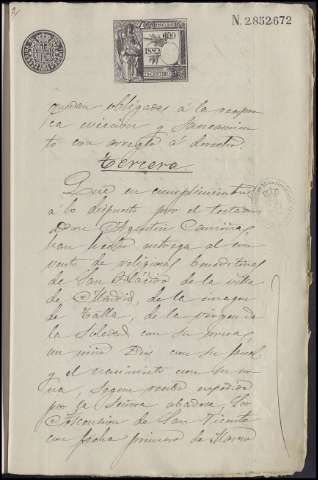 N. 2852672
quedan obligados á la recipro
ca evicion y saneamien
to con arreglo á derecho
Tercera
Que en cumplimiento
á lo dispuesto por el testador
Don Agustin
han hecho entrega al con
vento de religiosas Benedictinas
de San Plácido de la villa
de Madrid, de la imagen
de talla, de la virgen de
la Soledad con su
un niño Dios con su
y el nacimiento con su
na, segun recibo expedido
por la Señora abadesa, Sor
Ascension de San Vicente
con fecha primero de Marzo